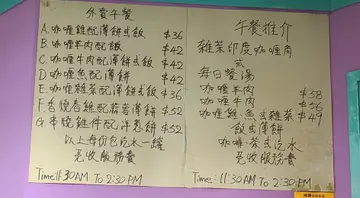 外賣午餐
A. 咖喱雞配薄餅或飯 $36
B. 咖喱羊肉配飯 $42
C. 咖喱牛肉配薄餅或飯 $42
D. 咖喱魚配薄餅 $42
E. 咖喱雜菜配薄餅或飯 $36
F. 香燒春雞配蒜蓉薄餅 $52
G. 串燒雞件配洋蔥餅 $52
以上每份包汽水一罐
免收服務費
Time: 11:30AM To 2:30 PM
午餐推介
雜菜印度咖喱角
或
每日餐湯
咖喱羊肉 $58
咖喱牛肉 $56
咖喱雞、魚或雜菜 $49
飯或薄餅
咖啡茶或汽水
免收服務費
Time: 11:30 AM To 2:30 PM